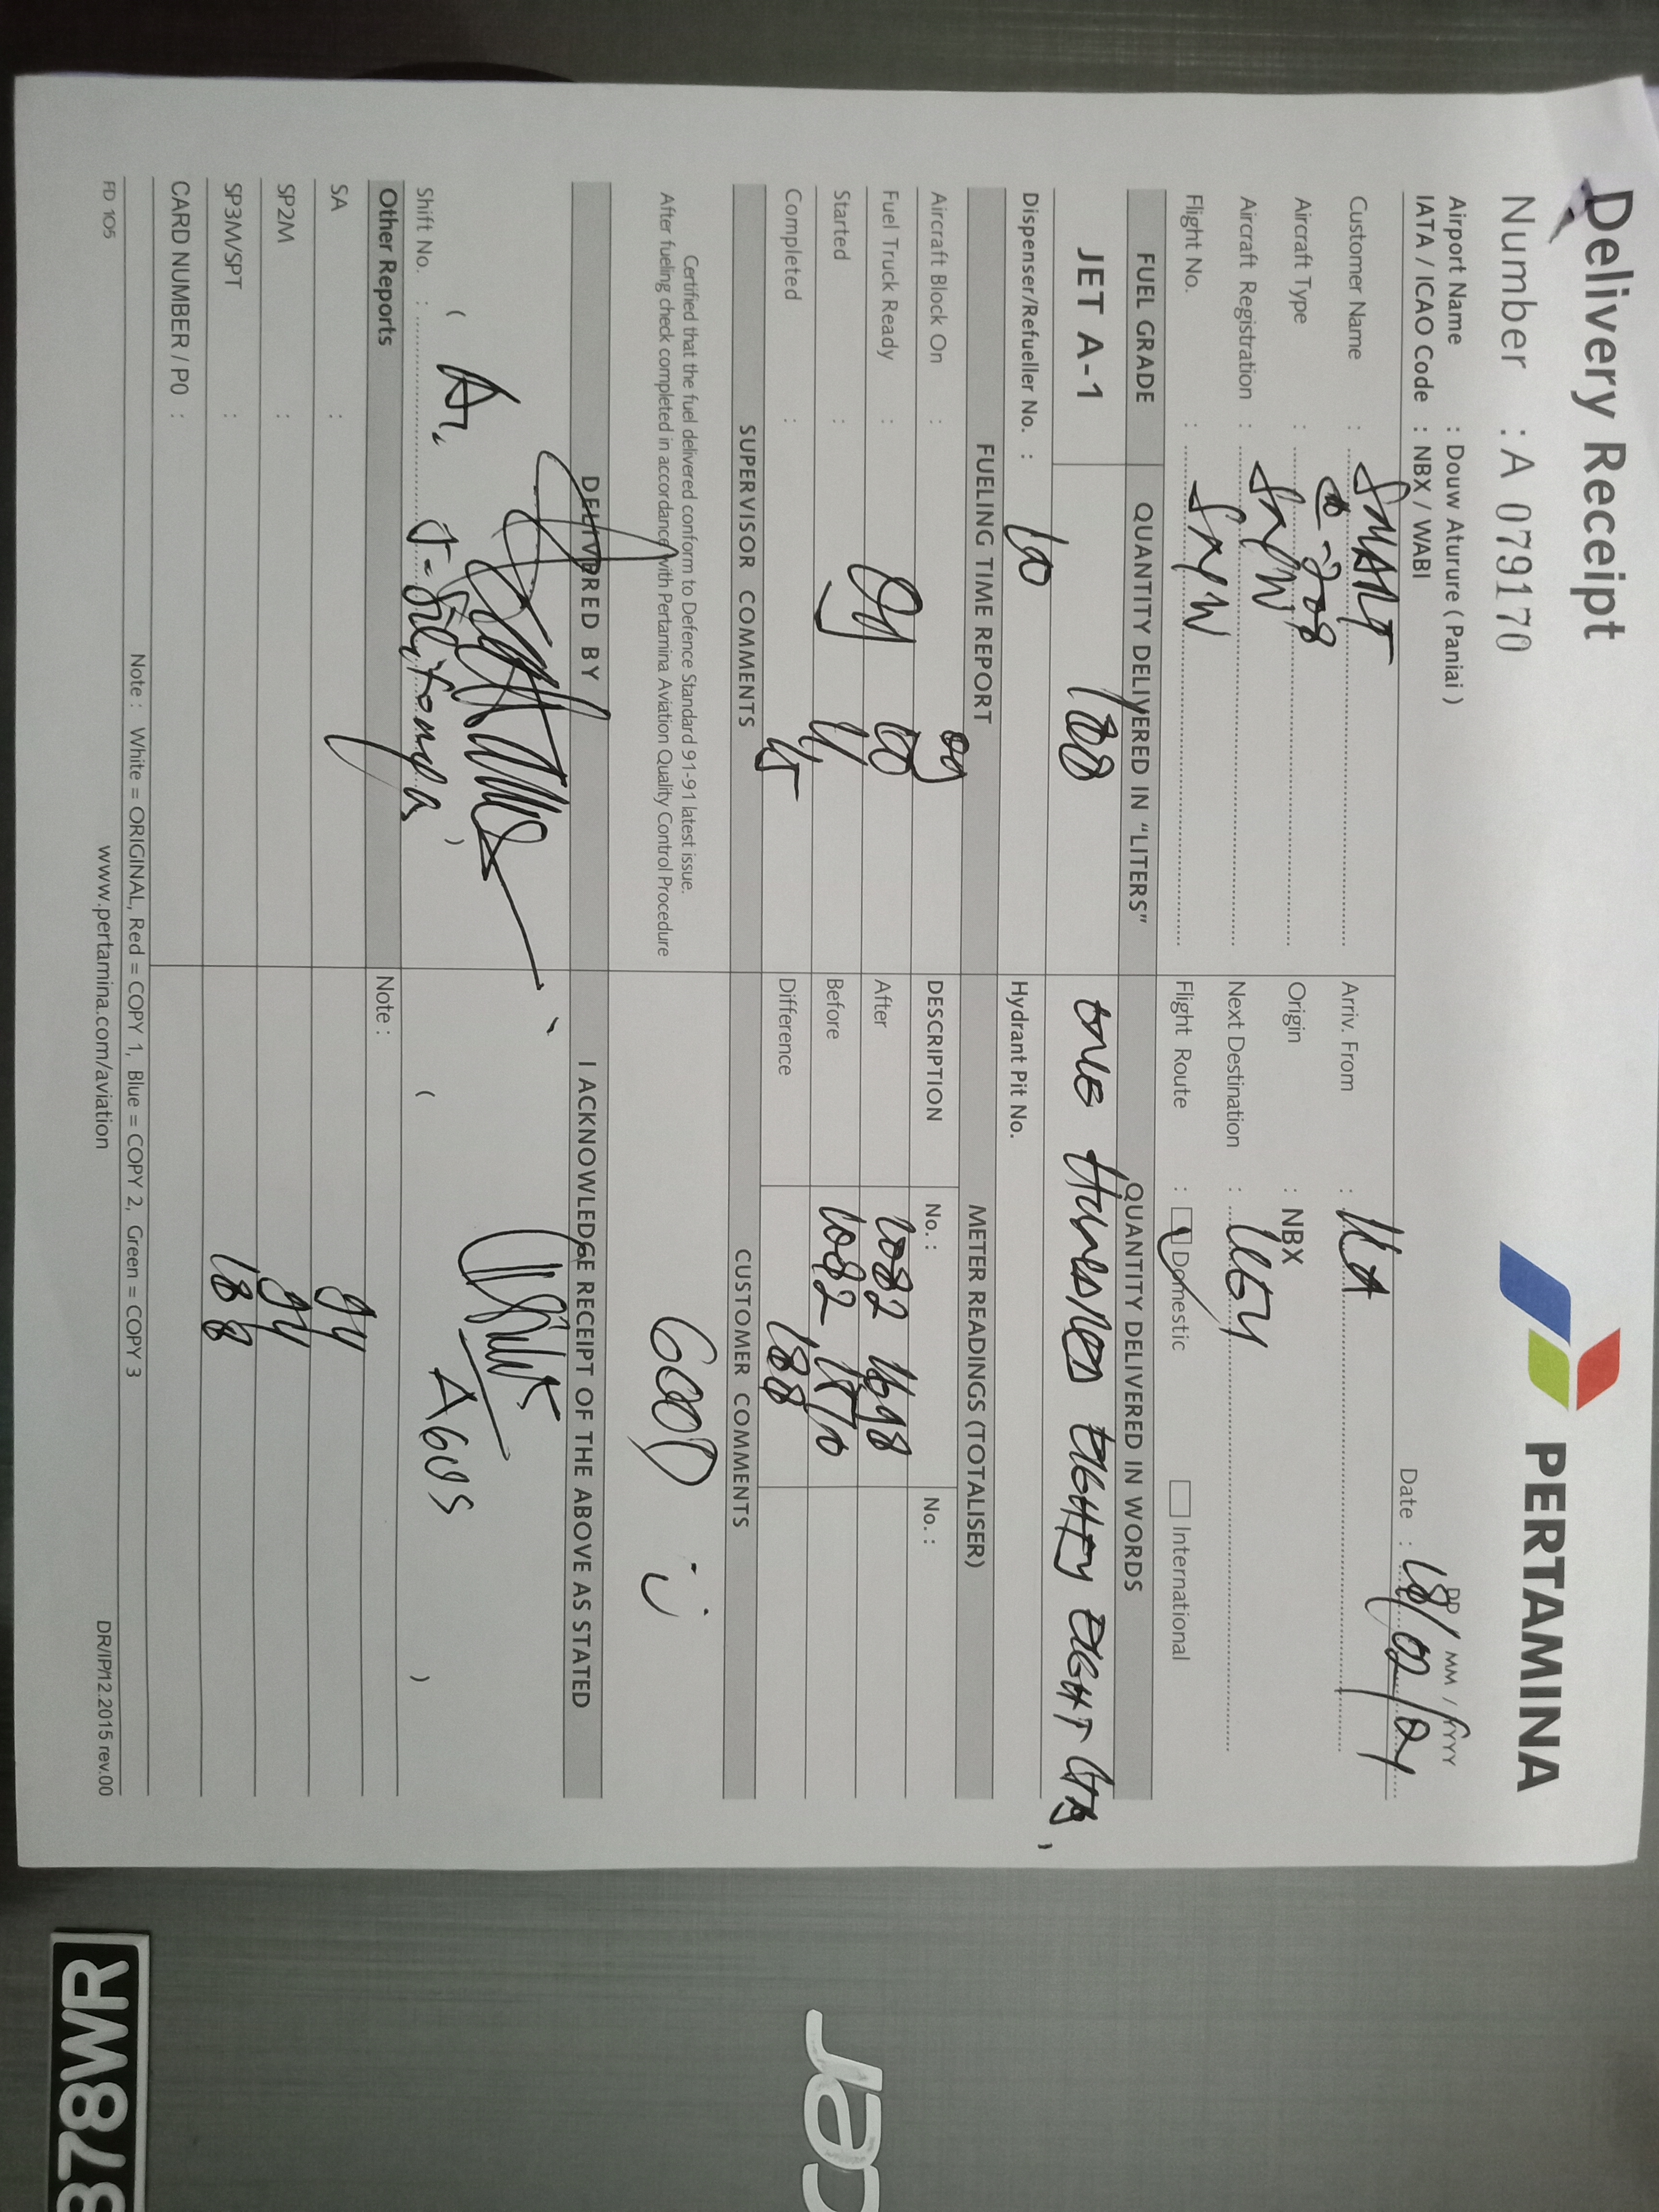 Delivery Receipt
PERTAMINA
Number : A 079170
Airport Name : Douw Aturure ( Paniai )
IATA / ICAO Code : NBX / WABI
DD / MM / YYYY
Date : 18/02/21
Customer Name : SMART
Arriv. From :
Aircraft Type : C-208
Origin : NBX
Aircraft Registration : SNW
Next Destination :
Flight No. : SNW
Flight Route : Domestic International
FUEL GRADE QUANTITY DELIVERED IN "LITERS" QUANTITY DELIVERED IN WORDS
JET A-1 188 ONE HUNDRED EIGHTY EIGHT LTR
Dispenser/Refueller No. : Hydrant Pit No.
FUELING TIME REPORT METER READINGS (TOTALISER)
Aircraft Block On : 09 DESCRIPTION No. : No. :
Fuel Truck Ready : 09 10 After 1082 1698
Started : 11 Before 1082 1510
Completed : 15 Difference 188
SUPERVISOR COMMENTS CUSTOMER COMMENTS
Certified that the fuel delivered conform to Defence Standard 91-91 latest issue.
After fueling check completed in accordance with Pertamina Aviation Quality Control Procedure
GOOD :)
DELIVERED BY I ACKNOWLEDGE RECEIPT OF THE ABOVE AS STATED
( ) ( AGUS )
Shift No. :
Other Reports Note :
SA : 94
SP2M : 94
SP3M/SPT : 188
CARD NUMBER / PO :
Note : White = ORIGINAL, Red = COPY 1, Blue = COPY 2, Green = COPY 3
FD 105 www.pertamina.com/aviation DR/IP/12.2015 rev.00
acer
878WR